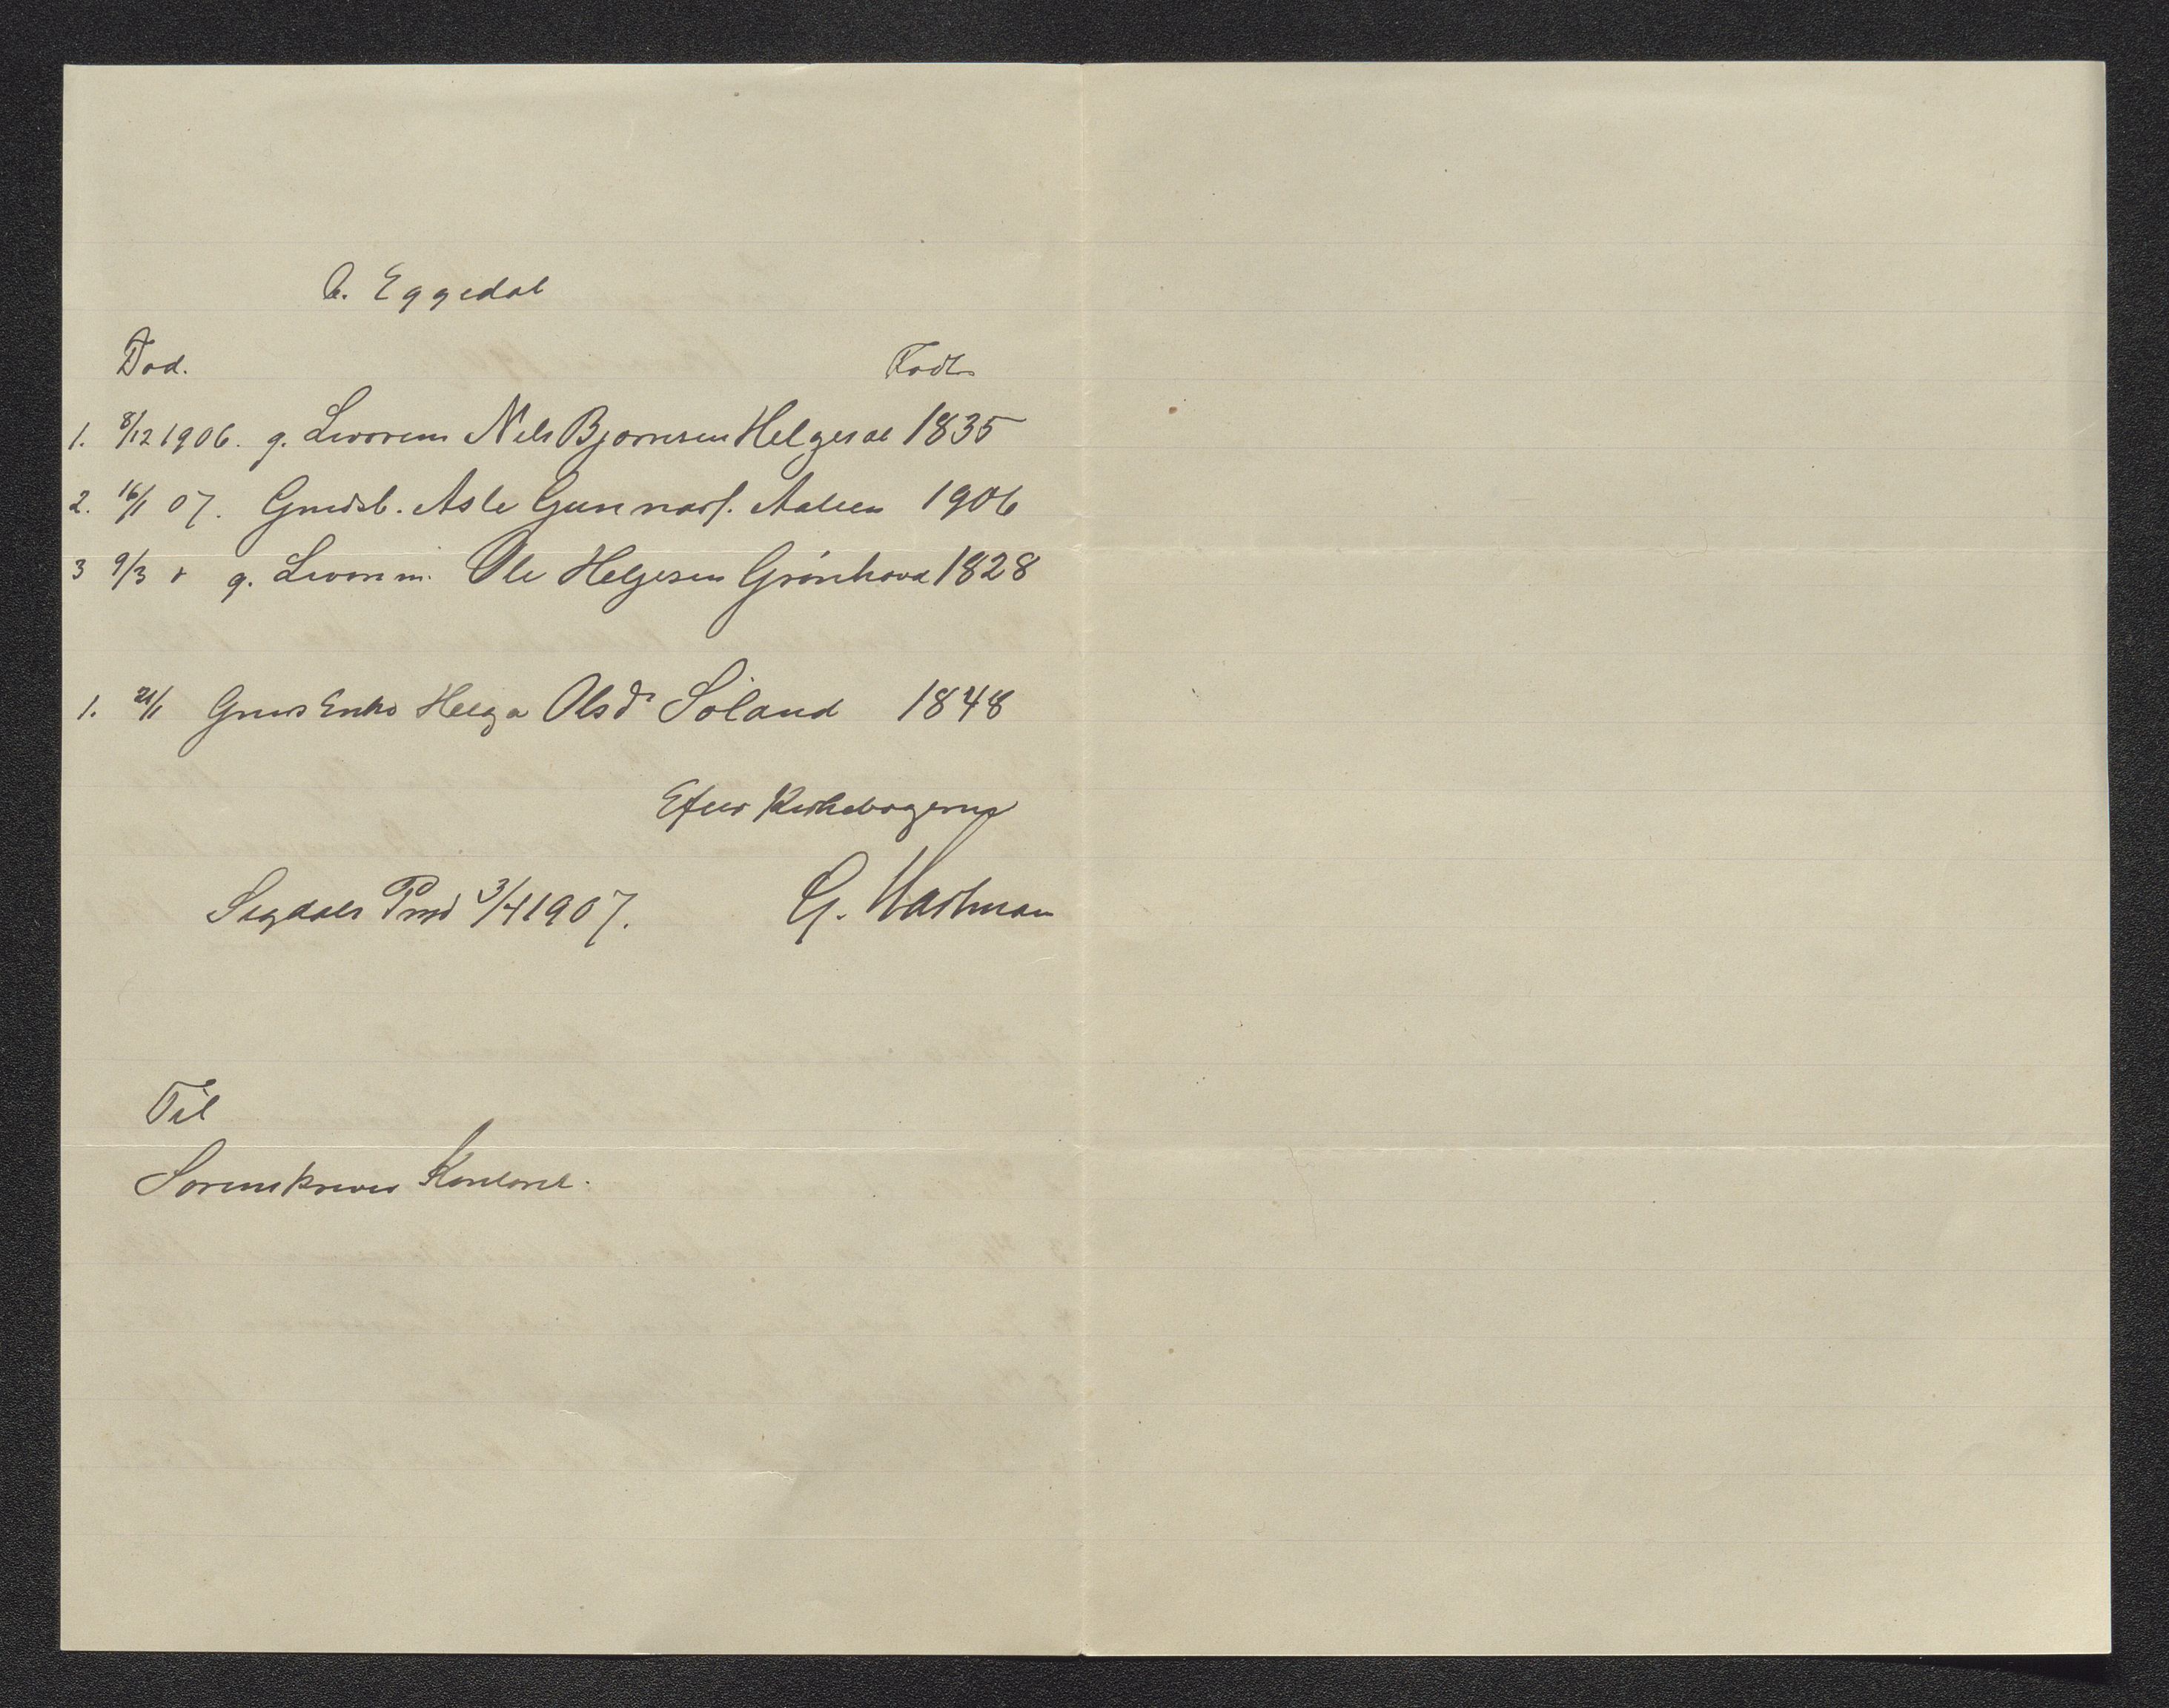 b. Eggedal
Død. Født
1. 8/12 1906. g. Livørem Nils Bjørnsen Helgesæt 1835
2. 16/1 07. Grmdsb. Asle Gunnarf. Aalien 1906
3 9/3 g. Livørm. Ole Helgesen Grønhovd 1828
1. 21/1 Grmds Enke Helga Olsdr Søland 1848
Efter Kirkebøgerne
Sigdals Prmd 3/4 1907. G. Hartman
Til
Sorenskriver Kontoret.